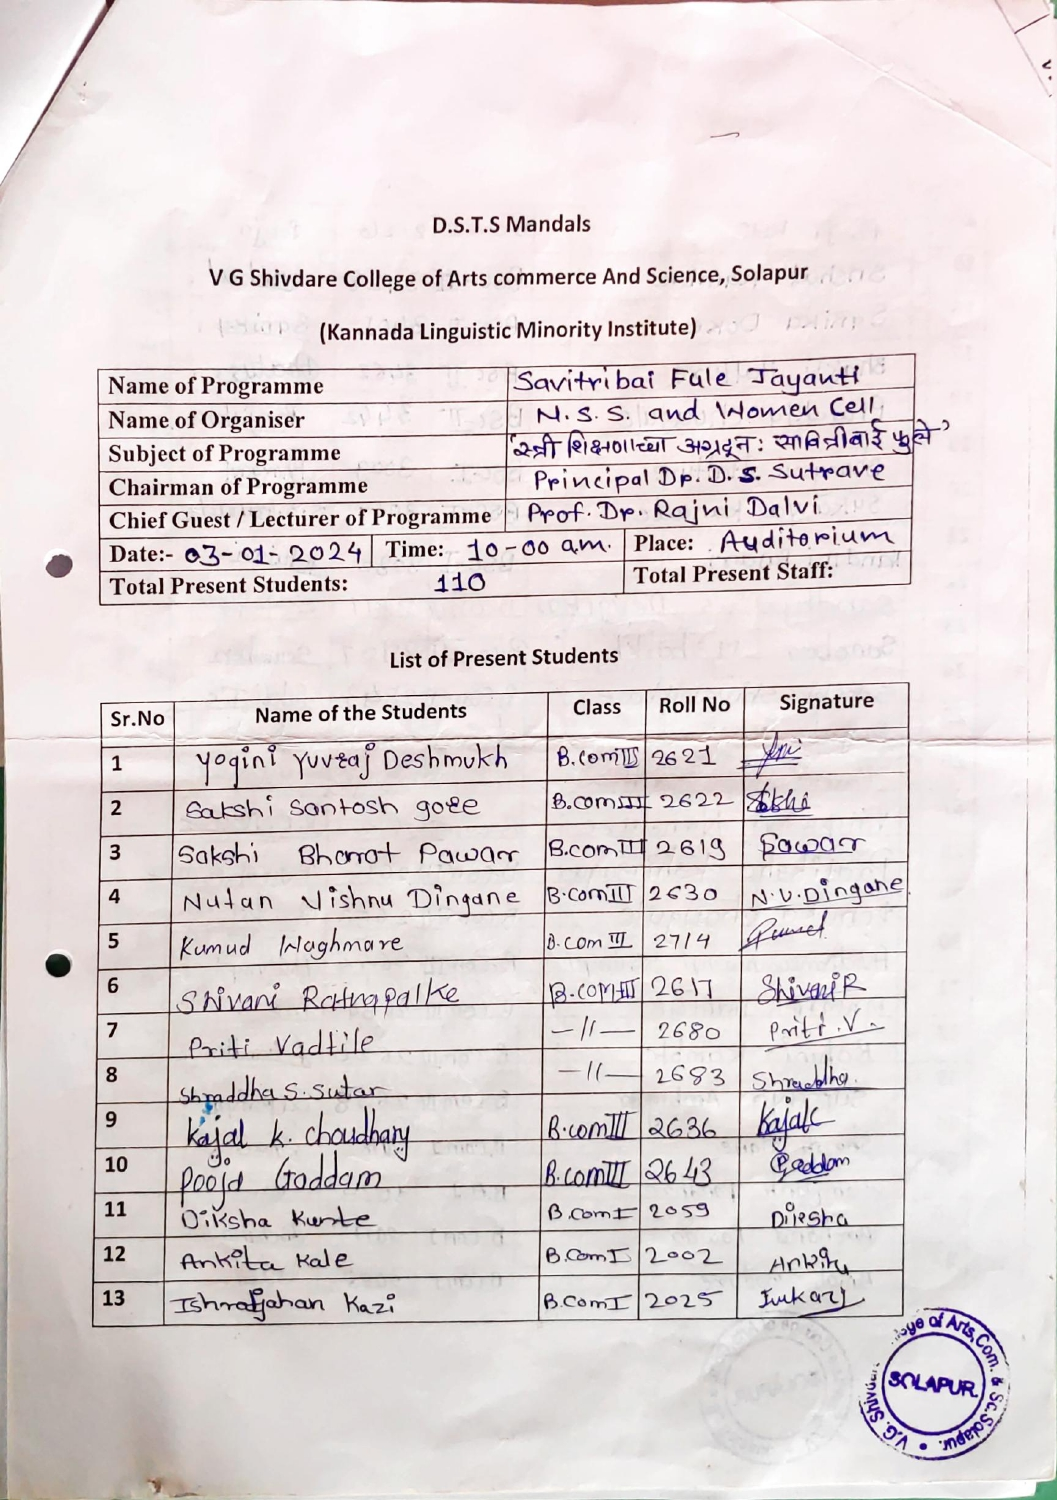 D.S.T.S Mandals
V G Shivdare College of Arts commerce And Science, Solapur
(Kannada Linguistic Minority Institute)
Name of Programme Savitribai Fule Jayanti
Name of Organiser N. S. S. and Women Cell
Subject of Programme 'स्त्री शिक्षणाच्या अग्रदूत: सावित्रीबाई फुले'
Chairman of Programme Principal Dr. D. S. Sutrave
Chief Guest / Lecturer of Programme Prof. Dr. Rajni Dalvi
Date:- 03-01-2024 Time: 10-00 a.m. Place: Auditorium
Total Present Students: 110 Total Present Staff:
List of Present Students
Sr.No Name of the Students Class Roll No Signature
1 Yogini Yuvraj Deshmukh B.com III 2621
2 Sakshi Santosh gore B.com III 2622
3 Sakshi Bharat Pawar B.com III 2619 Pawar
4 Nutan Vishnu Dingane B.Com III 2630 N.V.Dingane
5 Kumud Waghmare B.com III 2714
6 Shivani Ratnapalke B.com III 2617 Shivani R
7 Priti Vadtile —11— 2680 Priti.V.
8 Shraddha S. Sutar —11— 2683 Shraddha.
9 Kajal K. Choudhary B.com III 2636 Kajalc
10 Pooja Gaddam B.com III 2643 Gaddam
11 Diksha Kunte B.com I 2059 Diksha
12 Ankita Kale B.Com I 2002 Ankita
13 Ishratjahan Kazi B.Com I 2025
V.G. Shivdare College of Arts, Com. & Sc. Solapur.
SOLAPUR